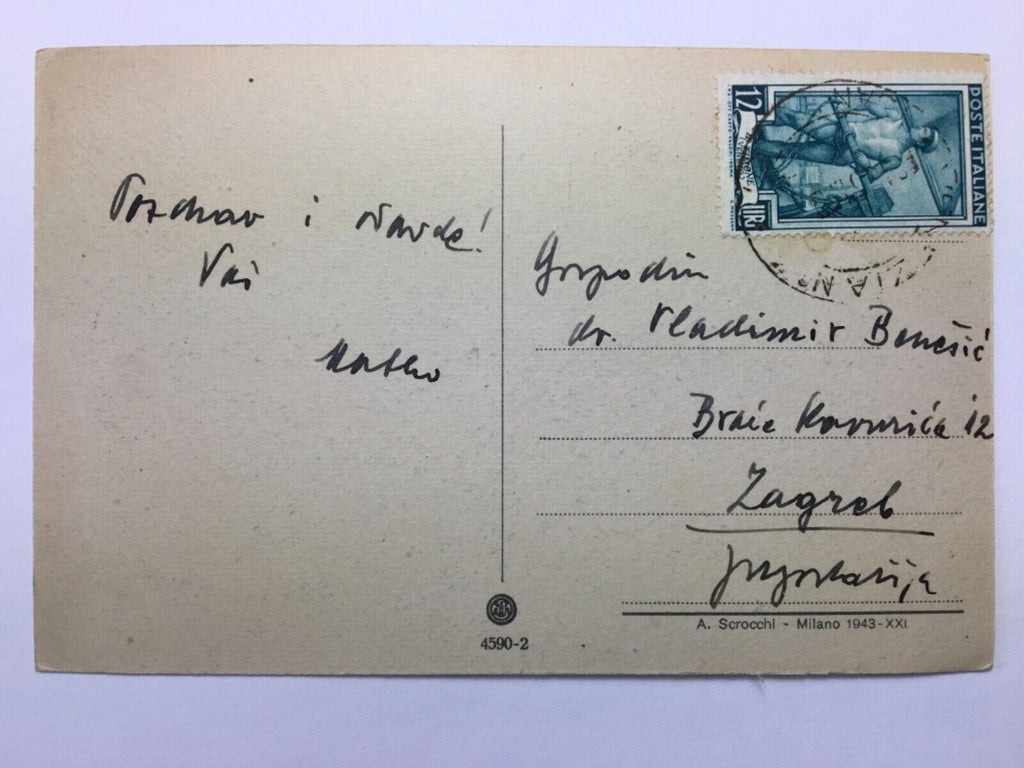 Pozdrav i
Vaš
Gospodin
dr. Vladimir Benešić
Braće Kavurića 12
Zagreb
Jugoslavija
POSTE ITALIANE
12
LIRE
4590-2
A. Scrocchi - Milano 1943-XXI